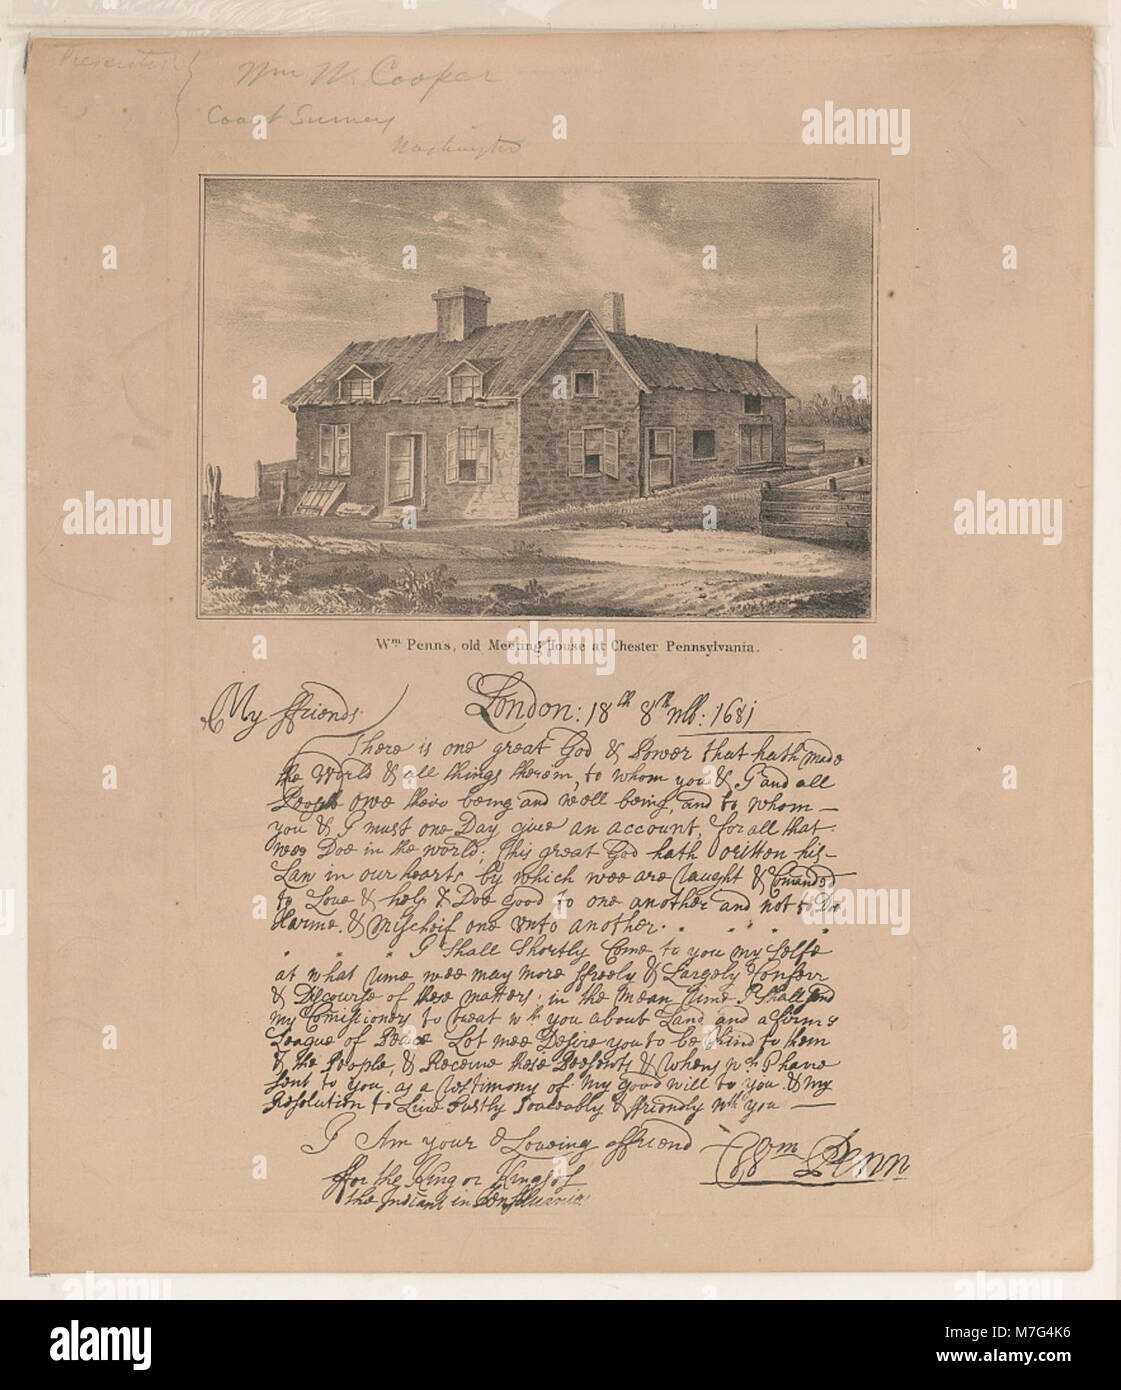 Presented } Wm W. Cooper
Coast Survey
Washington
Wm Penn's, old Meeting House at Chester Pennsylvania.
My ffriends London: 18th 8th mb: 1681
There is one great God & Power that hath made
the World & all things therein, to whom you & I and all
People owe their being and well being, and to whom —
you & I must one Day give an account, for all that
wee Doe in the world; this great God hath written his —
Law in our hearts by which wee are taught & Comanded
to Love & help & Doe good to one another and not to Doe
Harme & Mischeif one unto another.
I Shall Shortly Come to you my Selfe
at what time wee may more ffreely & Largely Conferr
& Discourse of these matters; in the mean time I Shall send
my Comissioners to treat wth you about Land and a firme
League of Peace Lot mee Desire you to be kind to them
& the People, & Receive these Presents & tokens wch I have
Sent to you, as a testimony of my good will to you & my
Resolution to Live Justly Peaceably & ffriendly wth you —
I Am your Loveing ffriend Wm Penn
ffor the King or Kings of
the Indians in Pensilvania
alamy
a
Image ID: M7G4K6
www.alamy.com